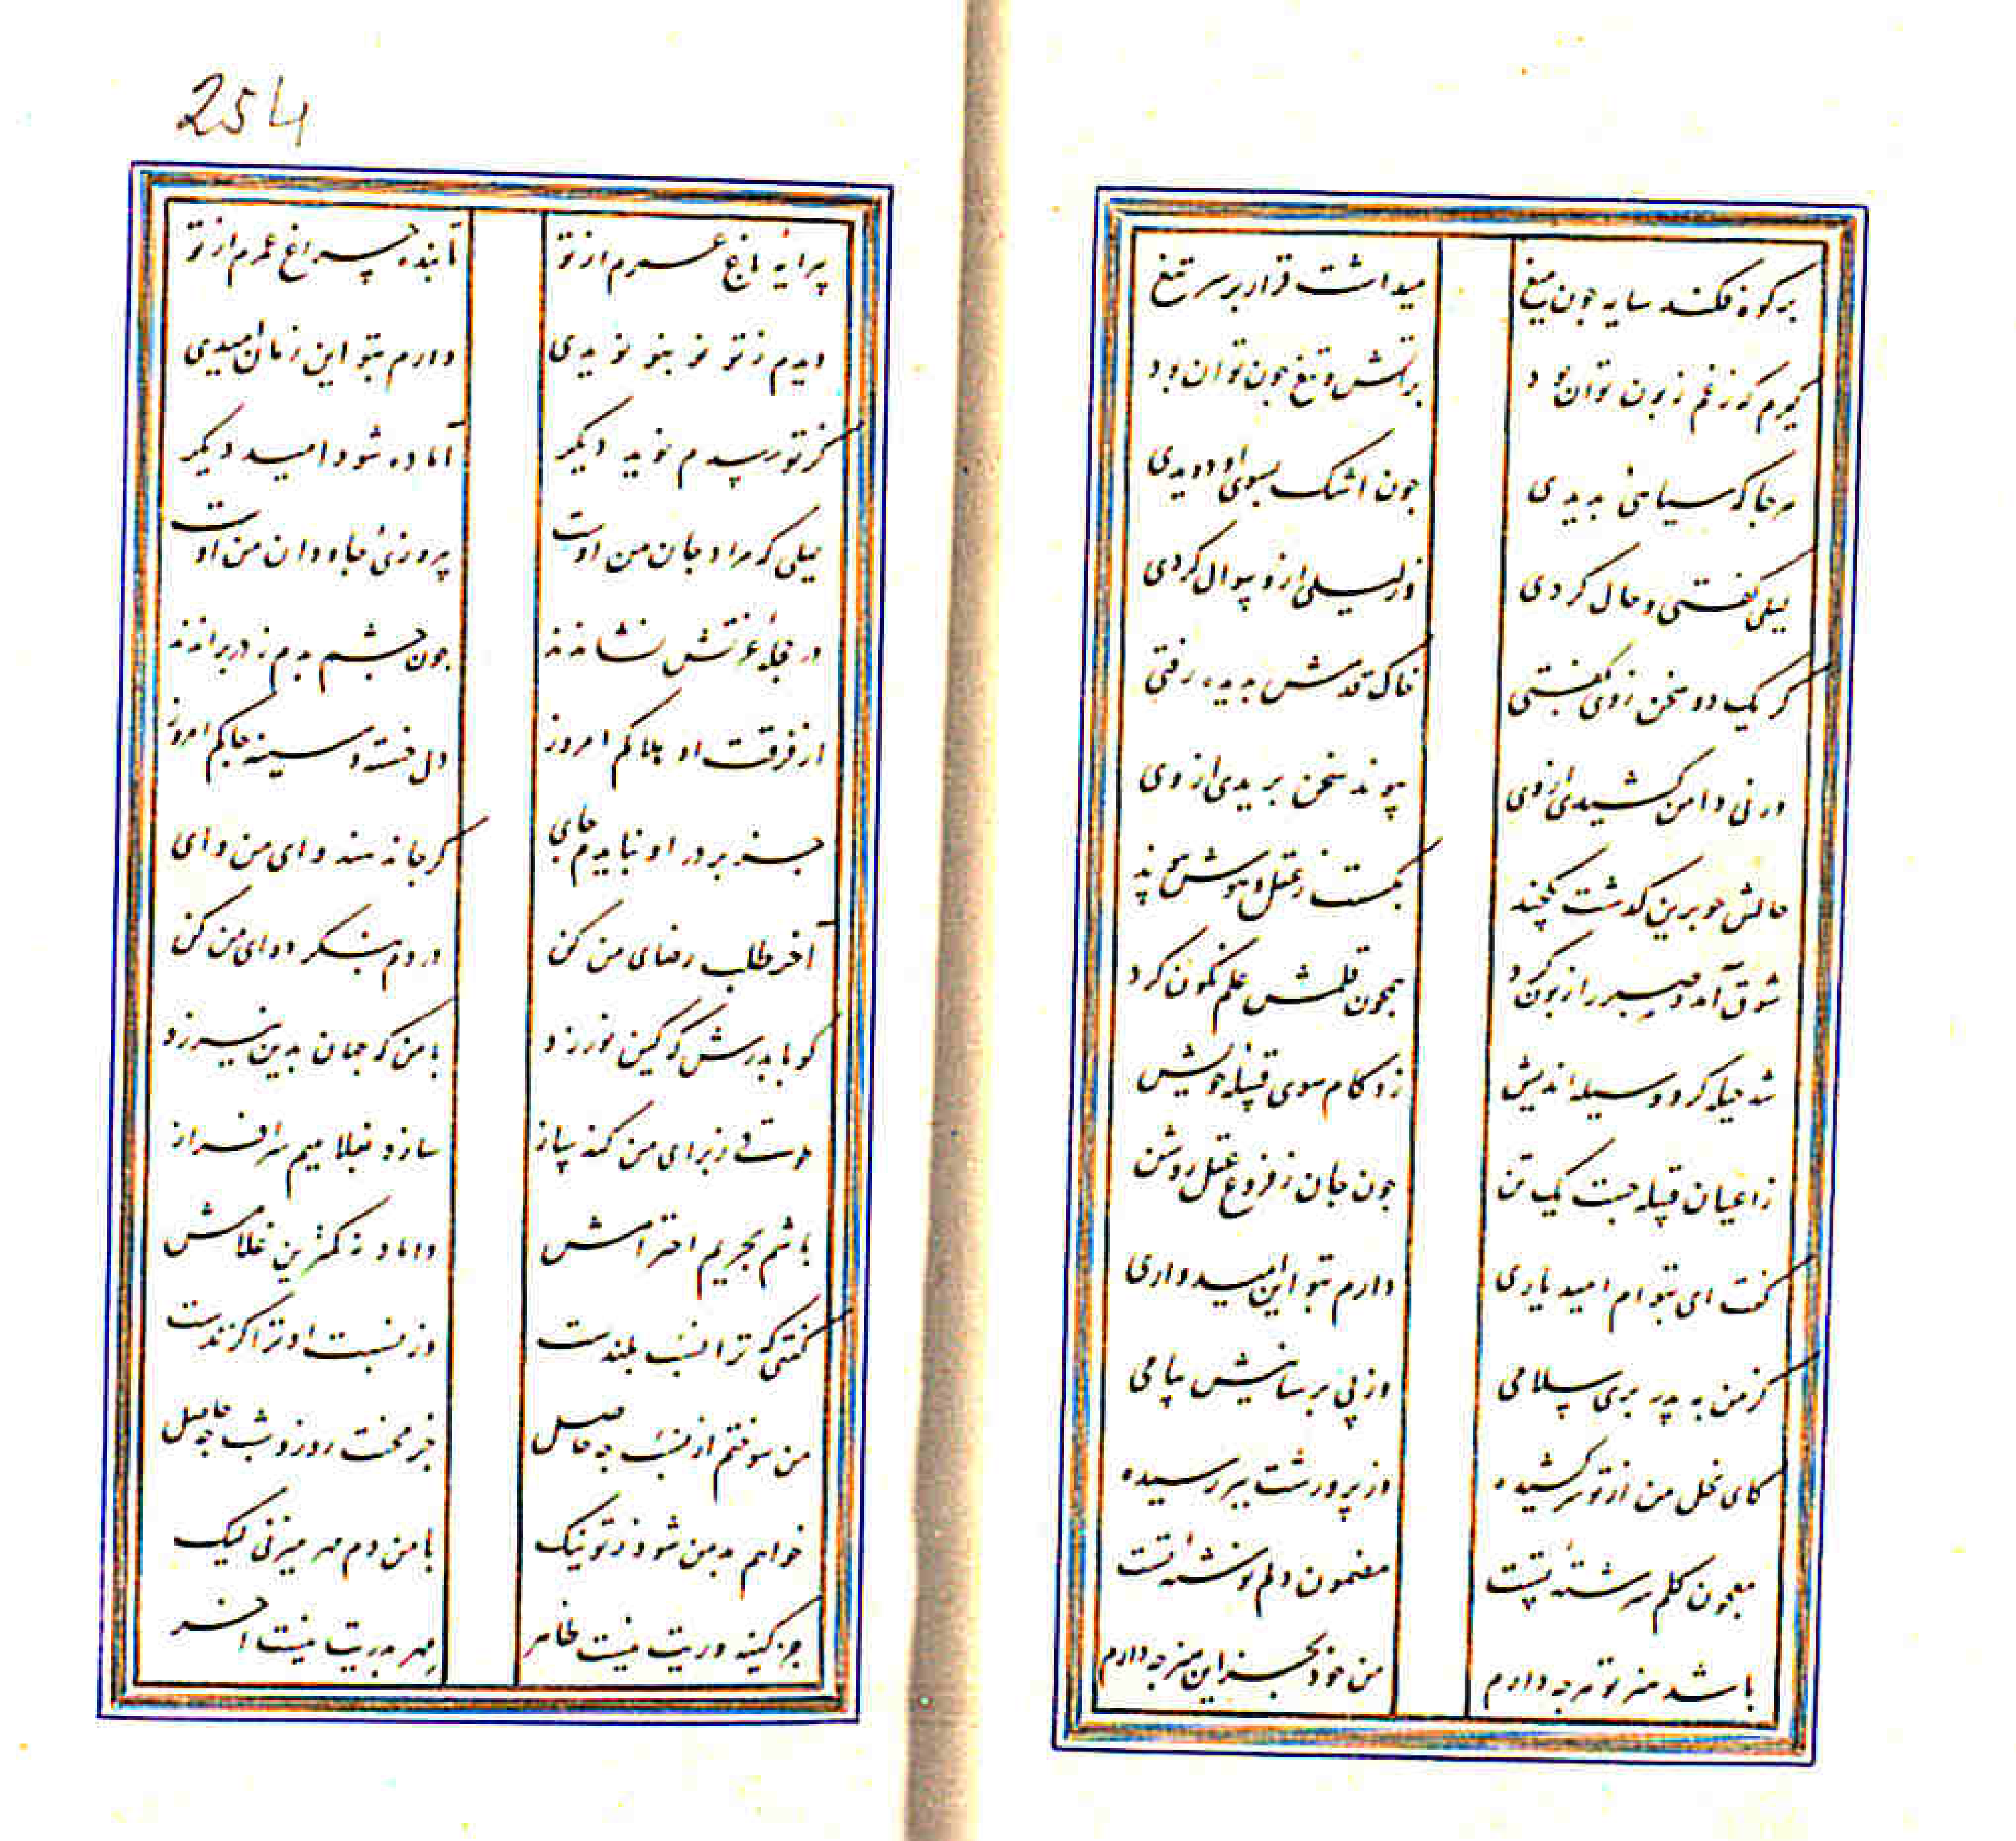 بر کوه فکند سایه چون میغ میداشت قرار بر سر تیغ
گیرم که ز غم زبون توان بود بر آتش و تیغ چون توان بود
هر جا که سیاهئی بدیدی چون اشک بسوی او دویدی
لیلی گفتی و حال کردی وز لیلی ازو سوال کردی
گر یک دو سخن ز وی بگفتی خاک قدمش بدیده رفتی
ور نی دامن کشیدی از وی پیوند سخن بریدی از وی
حالش چو برین گذشت یکچند بگسست ز عقل و هوش پیوند
شوق آمد و صبر را زبون کرد همچون قلمش علم نگون کرد
شد حیله گر و وسیله اندیش زد گام سوی قبیله خویش
ز اعیان قبیله جست یک تن چون جان ز فروغ عقل روشن
گفت ای بتو ام امید یاری دارم بتو این امیدواری
کز من به پدر بری سلامی وز پی برسانیش پیامی
کای نخل من از تو سر کشیده وز پرورشت ببر رسیده
معجون گلم سرشته تست مضمون دلم نوشته تست
باشد هنر تو هر چه دارم من خود بجز این هنر چه دارم
254
پیرایه باغ عمرم از تو تابنده چراغ عمرم از تو
دیدم ز تو نو بنو نویدی دارم بتو این زمان امیدی
کز تو رسدم نوید دیگر آماده شود امید دیگر
لیلی که مراد جان من اوست پیروزی جاودان من اوست
در حجله عزتش نشاندند چون چشم بدم ز در براندند
از فرقت او هلاکم امروز دل خسته و سینه چاکم امروز
جز بر در او نبایدم جای گر جا ندهند وای من وای
آخر طلب رضای من کن دردم بنگر دوای من کن
گو با پدرش که کین نورزد با من که جهان بدین نیرزد
وقتی ز برای من کند ساز سازد بغلامیم سرافراز
باشم بحریم احترامش داماد نه کمترین غلامش
گفتی که ترا نسب بلندست وز نسبت او ترا گزندست
من سوختم از نسب چه حاصل جز محنت روز و شب چه حاصل
خواهم بد من شود ز تو نیک با من دم مهر میزنی لیک
جز کینه وریت نیست ظاهر مهر پدریت نیست آخر